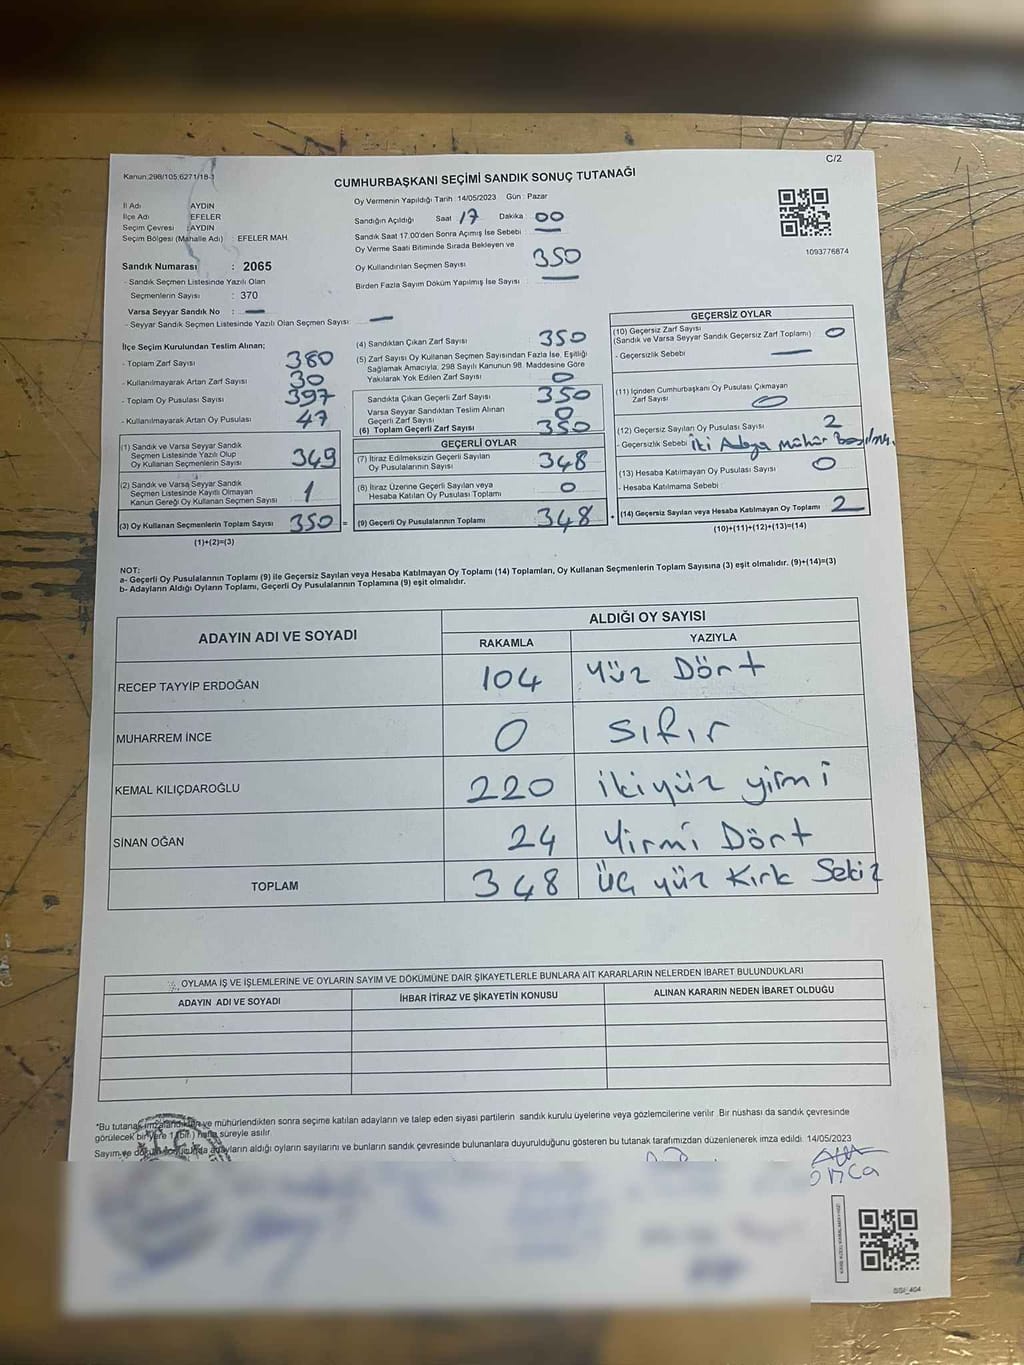 C/2
Kanun:298/105;6271/18-1
CUMHURBAŞKANI SEÇİMİ SANDIK SONUÇ TUTANAĞI
İl Adı AYDIN
İlçe Adı EFELER
Seçim Çevresi : AYDIN
Seçim Bölgesi (Mahalle Adı) EFELER MAH
Sandık Numarası : 2065
- Sandık Seçmen Listesinde Yazılı Olan
Seçmenlerin Sayısı : 370
Varsa Seyyar Sandık No : —
- Seyyar Sandık Seçmen Listesinde Yazılı Olan Seçmen Sayısı —
Oy Vermenin Yapıldığı Tarih : 14/05/2023 Gün : Pazar
Sandığın Açıldığı Saat 17 Dakika 00
Sandık Saat 17:00'den Sonra Açılmış İse Sebebi —
Oy Verme Saati Bitiminde Sırada Bekleyen ve
Oy Kullandırılan Seçmen Sayısı 350
Birden Fazla Sayım Döküm Yapılmış İse Sayısı —
1093776874
İlçe Seçim Kurulundan Teslim Alınan;
- Toplam Zarf Sayısı 380
- Kullanılmayarak Artan Zarf Sayısı 30
- Toplam Oy Pusulası Sayısı 397
- Kullanılmayarak Artan Oy Pusulası 47
(1) Sandık ve Varsa Seyyar Sandık
Seçmen Listesinde Yazılı Olup
Oy Kullanan Seçmenlerin Sayısı 349
(2) Sandık ve Varsa Seyyar Sandık
Seçmen Listesinde Kayıtlı Olmayan
Kanun Gereği Oy Kullanan Seçmen Sayısı 1
(3) Oy Kullanan Seçmenlerin Toplam Sayısı 350 =
(1)+(2)=(3)
(4) Sandıktan Çıkan Zarf Sayısı 350
(5) Zarf Sayısı Oy Kullanan Seçmen Sayısından Fazla İse, Eşitliği
Sağlamak Amacıyla, 298 Sayılı Kanunun 98. Maddesine Göre
Yakılarak Yok Edilen Zarf Sayısı 0
Sandıkta Çıkan Geçerli Zarf Sayısı 350
Varsa Seyyar Sandıktan Teslim Alınan
Geçerli Zarf Sayısı 0
(6) Toplam Geçerli Zarf Sayısı 350
GEÇERLİ OYLAR
(7) İtiraz Edilmeksizin Geçerli Sayılan
Oy Pusulalarının Sayısı 348
(8) İtiraz Üzerine Geçerli Sayılan veya
Hesaba Katılan Oy Pusulası Toplamı 0
(9) Geçerli Oy Pusulalarının Toplamı 348 +
GEÇERSİZ OYLAR
(10) Geçersiz Zarf Sayısı
(Sandık ve Varsa Seyyar Sandık Geçersiz Zarf Toplamı) 0
- Geçersizlik Sebebi —
(11) İçinden Cumhurbaşkanı Oy Pusulası Çıkmayan
Zarf Sayısı 0
(12) Geçersiz Sayılan Oy Pusulası Sayısı 2
- Geçersizlik Sebebi İki Adaya Mühür
(13) Hesaba Katılmayan Oy Pusulası Sayısı 0
- Hesaba Katılmama Sebebi
(14) Geçersiz Sayılan veya Hesaba Katılmayan Oy Toplamı 2
(10)+(11)+(12)+(13)=(14)
NOT:
a- Geçerli Oy Pusulalarının Toplamı (9) ile Geçersiz Sayılan veya Hesaba Katılmayan Oy Toplamı (14) Toplamları, Oy Kullanan Seçmenlerin Toplam Sayısına (3) eşit olmalıdır. (9)+(14)=(3)
b- Adayların Aldığı Oyların Toplamı, Geçerli Oy Pusulalarının Toplamına (9) eşit olmalıdır.
ADAYIN ADI VE SOYADI ALDIĞI OY SAYISI
RAKAMLA YAZIYLA
RECEP TAYYİP ERDOĞAN 104 Yüz Dört
MUHARREM İNCE 0 Sıfır
KEMAL KILIÇDAROĞLU 220 ikiyüz yirmi
SİNAN OĞAN 24 Yirmi Dört
TOPLAM 348 Üç yüz Kırk Sekiz
OYLAMA İŞ VE İŞLEMLERİNE VE OYLARIN SAYIM VE DÖKÜMÜNE DAİR ŞİKAYETLERLE BUNLARA AİT KARARLARIN NELERDEN İBARET BULUNDUKLARI
ADAYIN ADI VE SOYADI İHBAR İTİRAZ VE ŞİKAYETİN KONUSU ALINAN KARARIN NEDEN İBARET OLDUĞU
*Bu tutanak imzalandıktan ve mühürlendikten sonra seçime katılan adayların ve talep eden siyasi partilerin sandık kurulu üyelerine veya gözlemcilerine verilir. Bir nüshası da sandık çevresinde
görülecek bir yere 1 (bir) hafta süreyle asılır.
Sayım ve döküm sonucunda adayların aldığı oyların sayılarını ve bunların sandık çevresinde bulunanlara duyurulduğunu gösteren bu tutanak tarafımızdan düzenlenerek imza edildi. 14/05/2023